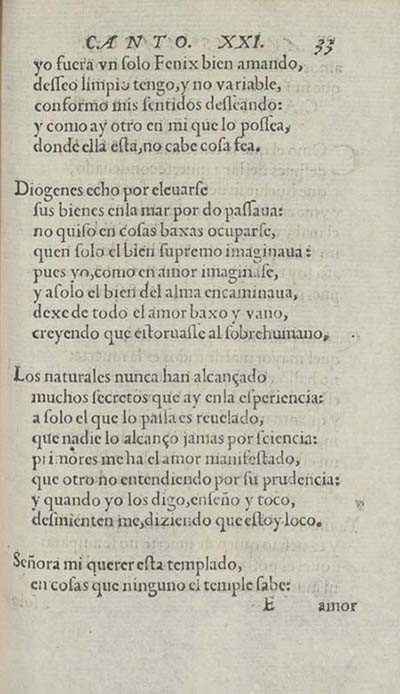 CANTO. XXI. 33
yo fuera vn ſolo Fenix bien amando,
deſſeo limpio tengo, y no variable,
conformo mis ſentidos deſſeando:
y como ay otro en mi que lo poſſea,
donde ella eſta, no cabe coſa fea.
Diogenes echo por eleuarſe
ſus bienes enla mar por do paſſaua:
no quiſo en coſas baxas ocuparſe,
quen ſolo el bien ſupremo imaginaua:
pues yo, como en amor imaginaſe,
y aſolo el bien del alma encaminaua,
dexe de todo el amor baxo y vano,
creyendo que eſtoruaſſe al ſobrehumano.
Los naturales nunca han alcançado
muchos ſecretos que ay en la eſperiencia:
a ſolo el que lo paſſa es reuelado,
que nadie lo alcanço jamas por ſciencia:
primores me ha el amor manifeſtado,
que otro no entendiendo por ſu prudencia:
y quando yo los digo, enſeño y toco,
deſmienten me, diziendo que eſtoy loco.
Señora mi querer eſta templado,
en coſas que ninguno el temple ſabe:
E amor